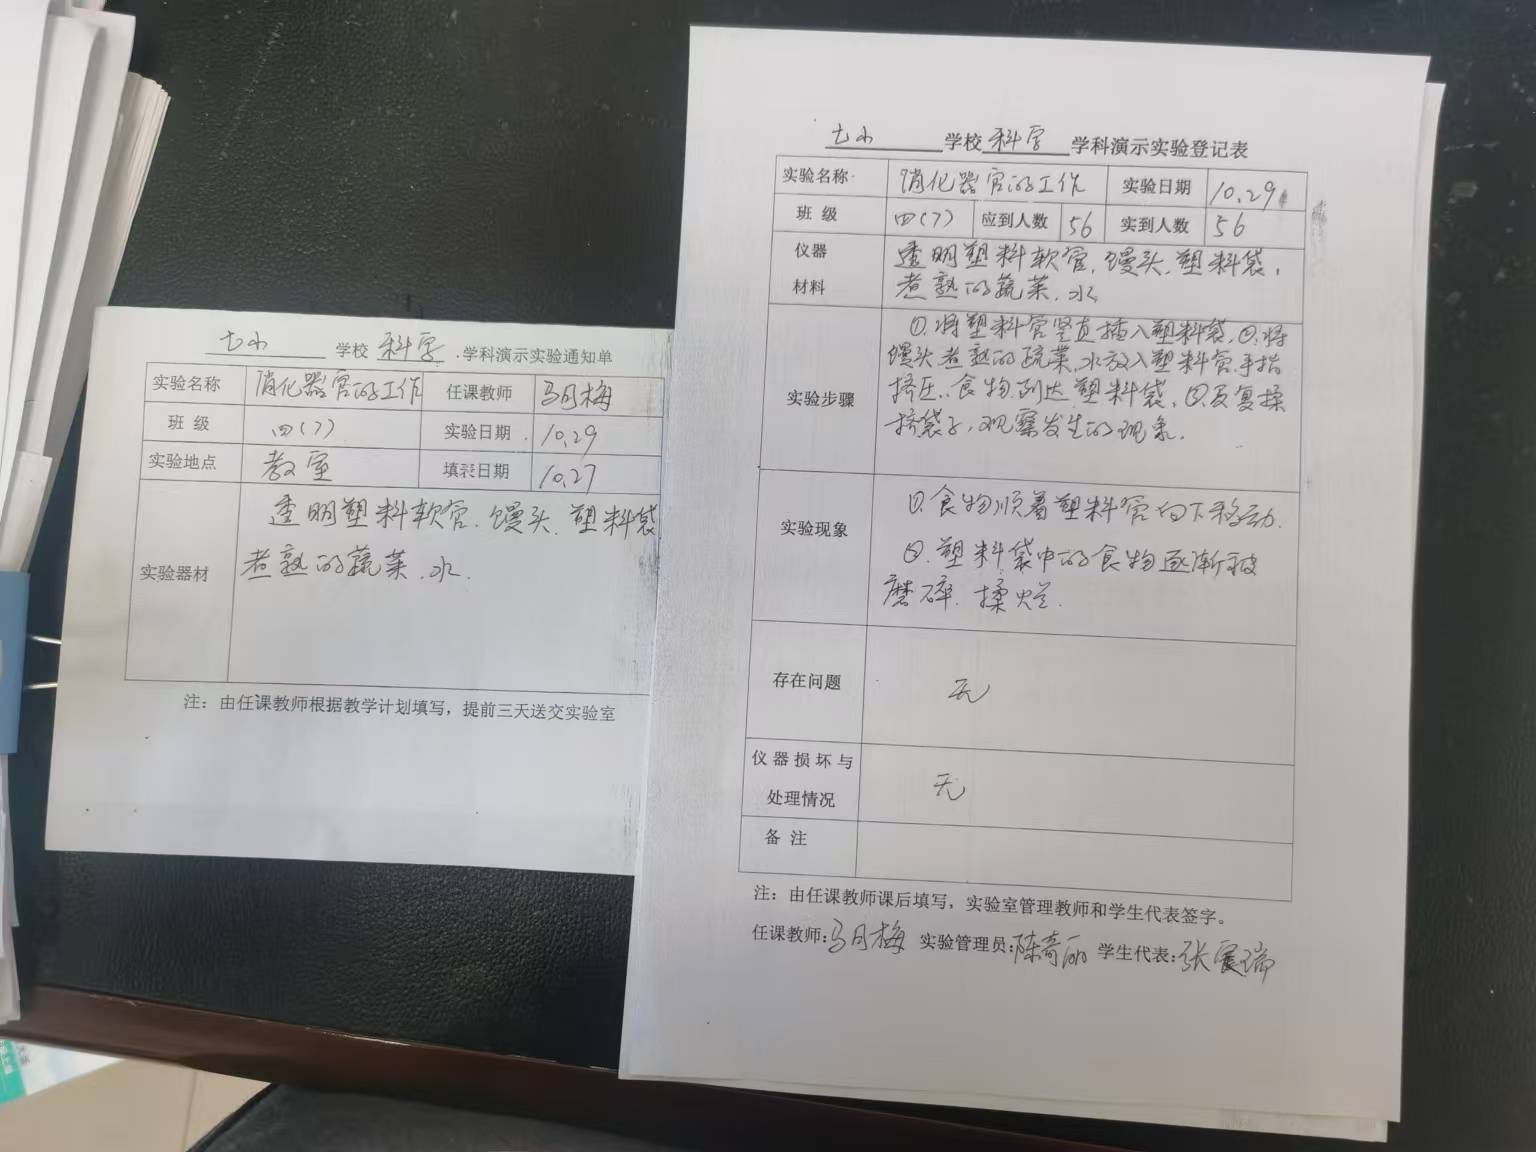 七小 学校 科学 学科演示实验通知单
实验名称 消化器官的工作 任课教师 马月梅
班 级 四(7) 实验日期 10.29
实验地点 教室 填表日期 10.27
实验器材 透明塑料软管、馒头、塑料袋
煮熟的蔬菜、水.
注：由任课教师根据教学计划填写，提前三天送交实验室
七小 学校 科学 学科演示实验登记表
实验名称 消化器官的工作 实验日期 10.29
班 级 四(7) 应到人数 56 实到人数 56
仪器 透明塑料软管、馒头、塑料袋、
材料 煮熟的蔬菜、水
①.将塑料管竖直插入塑料袋.②.将
馒头煮熟的蔬菜、水放入塑料管.手指
实验步骤 挤压、食物到达塑料袋、③反复揉
挤袋子,观察发生的现象.
①.食物顺着塑料管向下移动.
实验现象
②.塑料袋中的食物逐渐被
磨碎、揉烂.
存在问题 无
仪器损坏与
处理情况 无
备 注
注：由任课教师课后填写，实验室管理教师和学生代表签字。
任课教师:马月梅 实验管理员:陈奇丽 学生代表:张